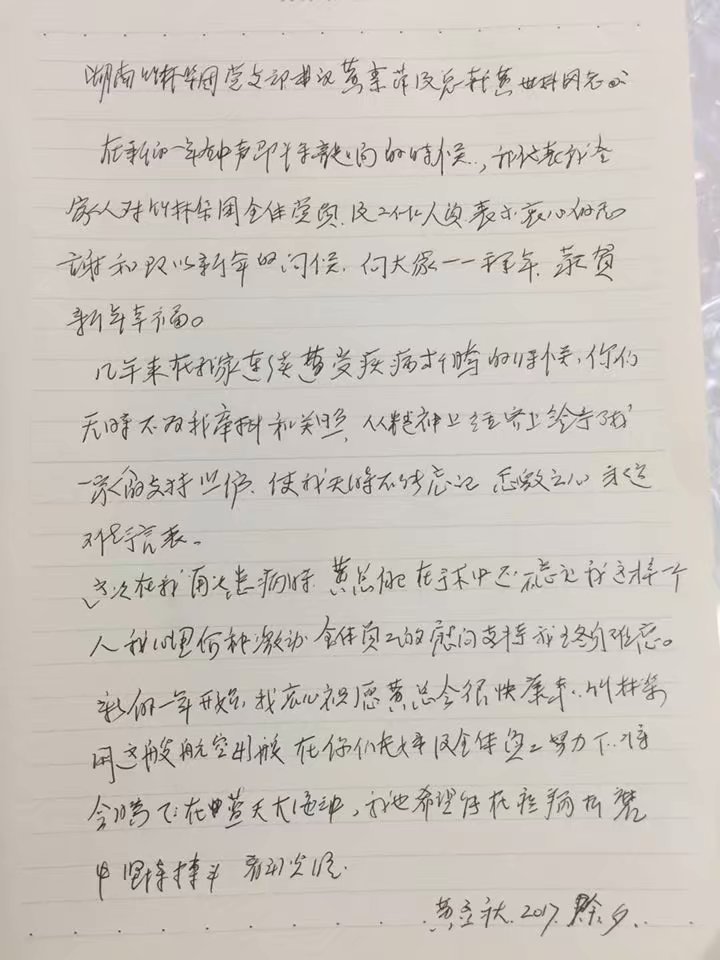 湖南竹林集团党支部书记黄素萍及总裁黄世科同志:
在新的一年钟声即将敲响的时候,我代表我全
家人对竹林集团全体党员及工作人员表示衷心的感
谢和致以新年的问候,向大家一一拜年,恭贺
新年幸福。
几年来在我家连续遭受疾病折腾的时候,你们
无时不为我牵挂和关照,从精神上经济上给予了我
一家人的支持,使我无时不能忘记,感激之心永远
难于言表。
这次在我再次患病时,黄总他在手术中还不忘记我这样一个
人,我心里何种激动,全体员工的慰问支持我终身难忘。
新的一年开始,我衷心祝愿黄总会很快康泰,竹林集
团这艘航空母舰在你们 及全体员工努力下,将
会腾飞在蓝天大海中,我也希望能在疾病折磨
中坚持搏斗,看到
黄 秋.2017.除夕.